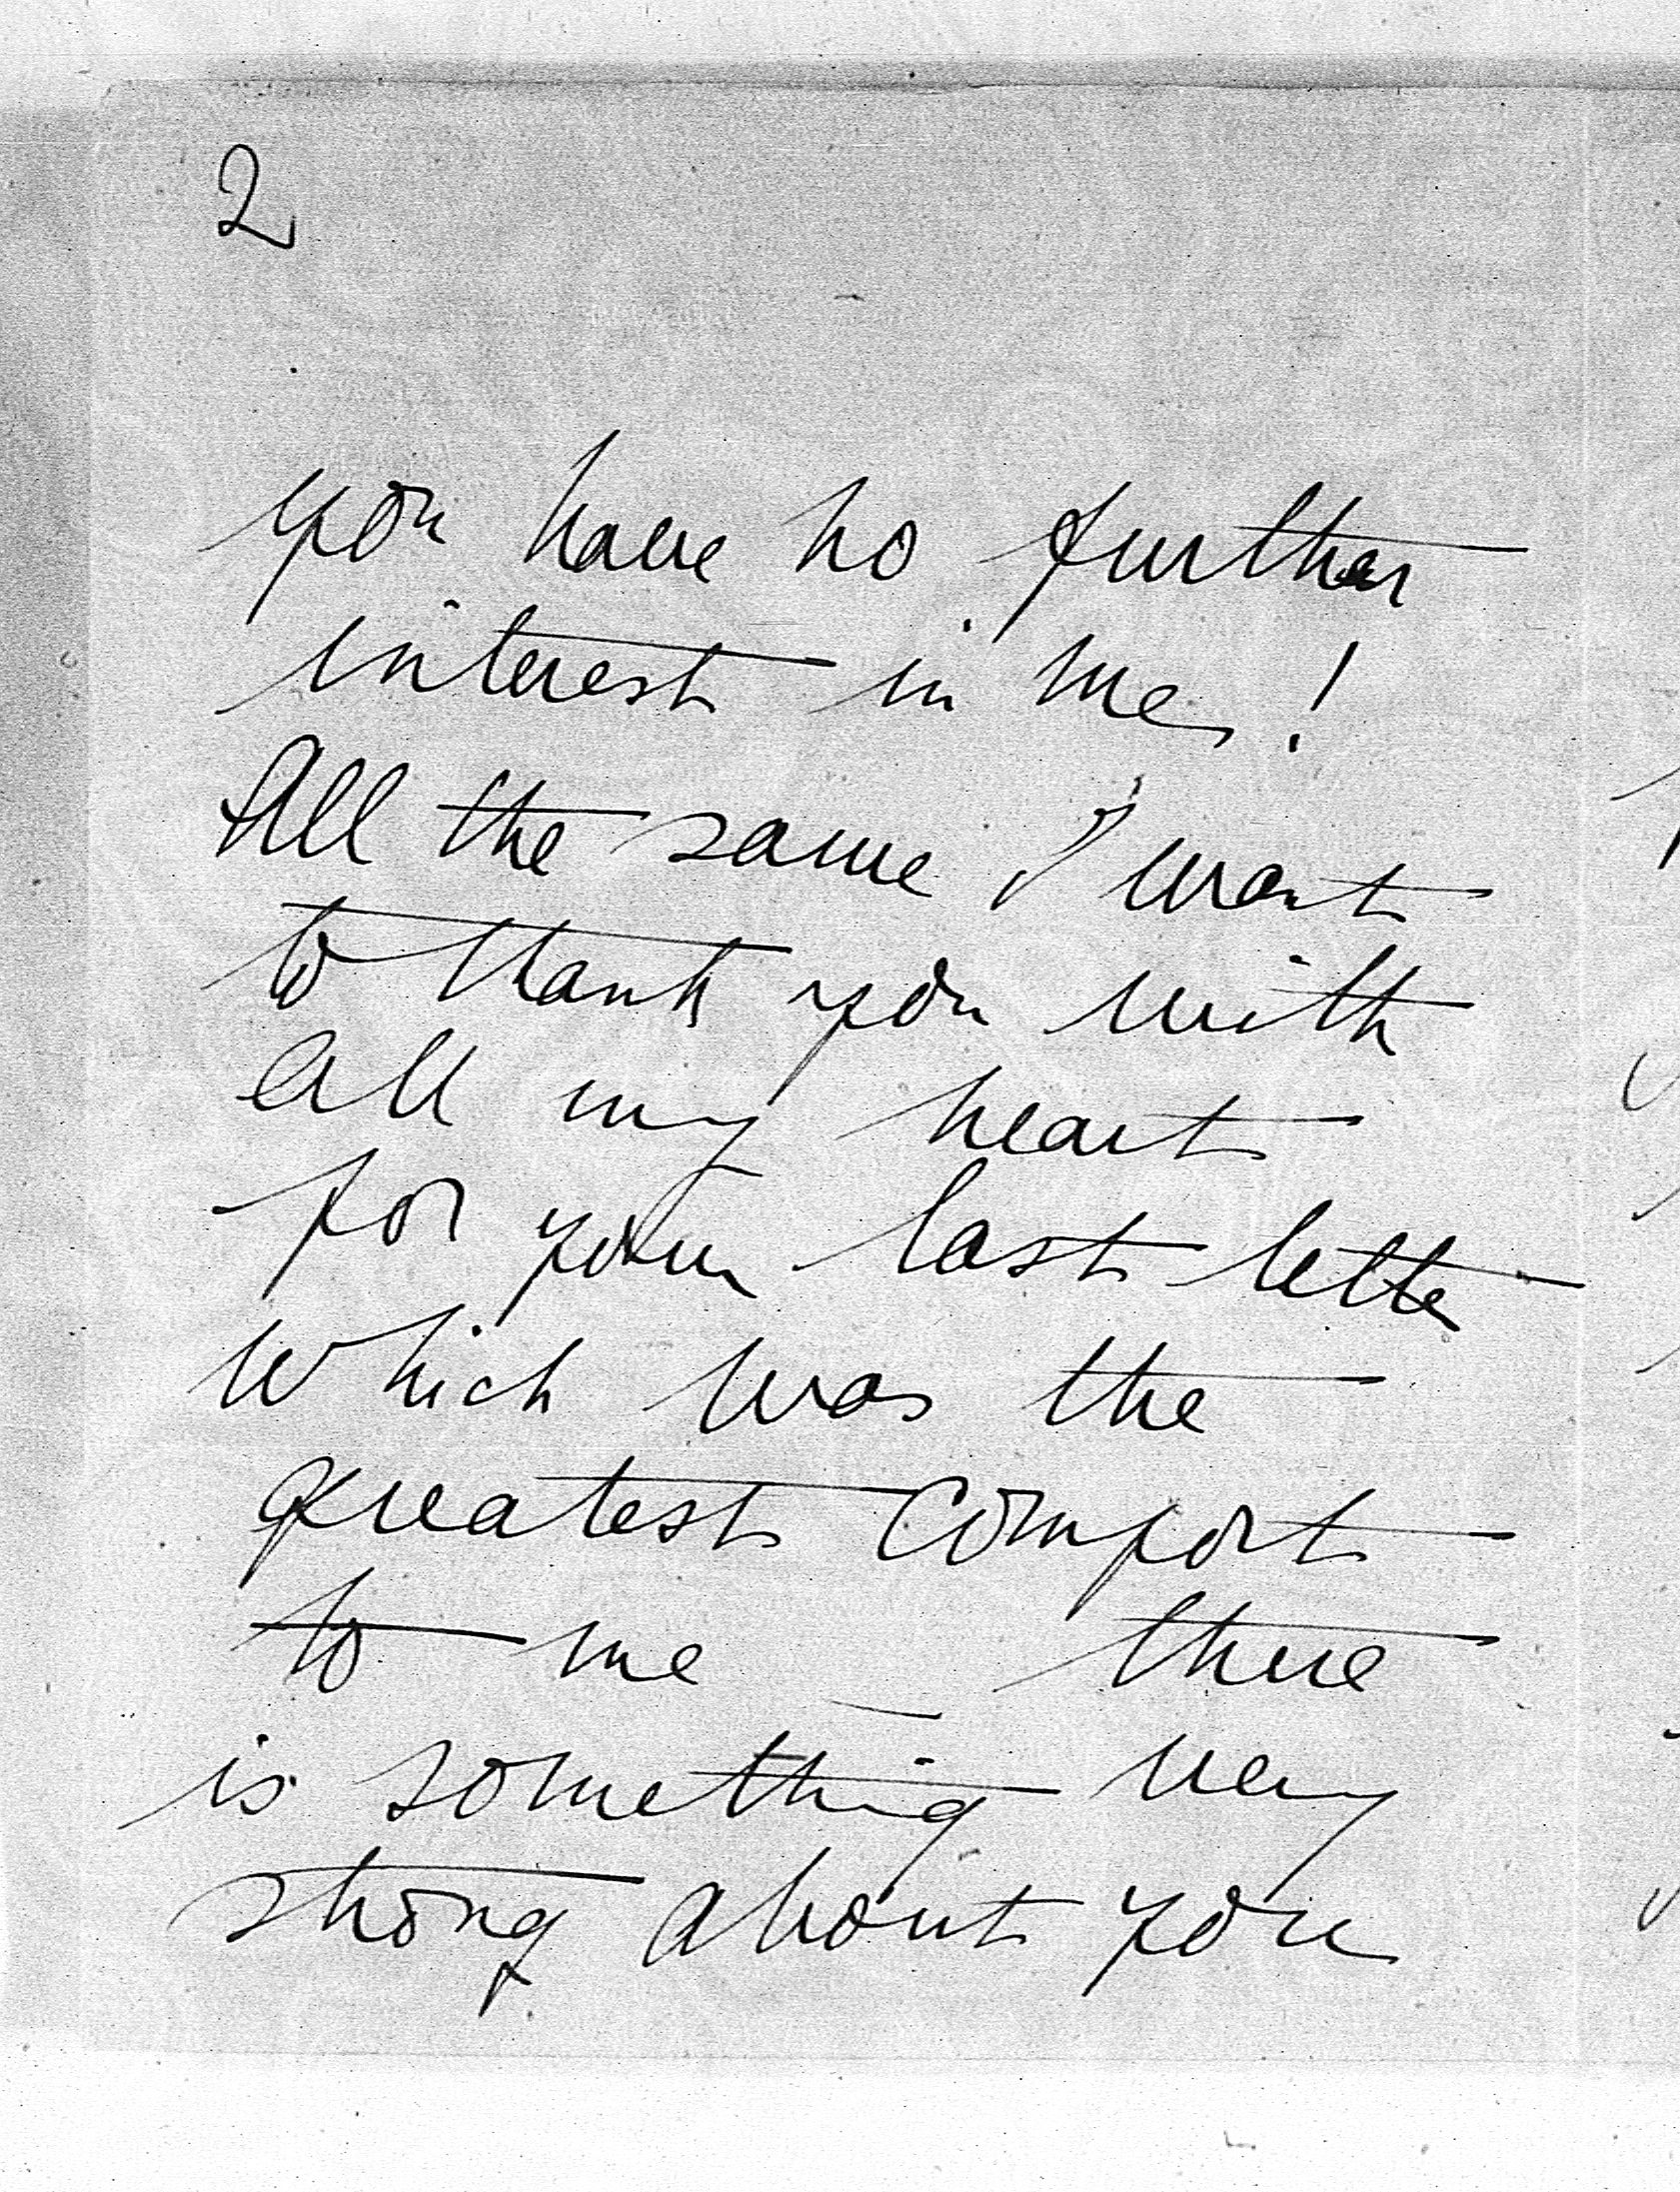 2
you have no further
interest in me!
All the same I want
to thank you with
all my heart
for your last letter
which was the
greatest comfort
to me _ there
is something very
strong about you